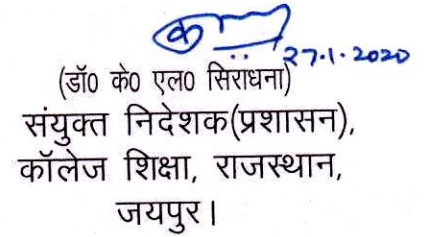 27.1.2020
(डॉ0 के0 एल0 सिराधना)
संयुक्त निदेशक(प्रशासन),
कॉलेज शिक्षा, राजस्थान,
जयपुर।